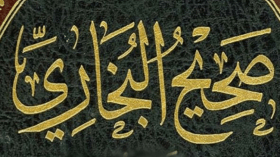 صَحِيحُ البُخَارِيِّ